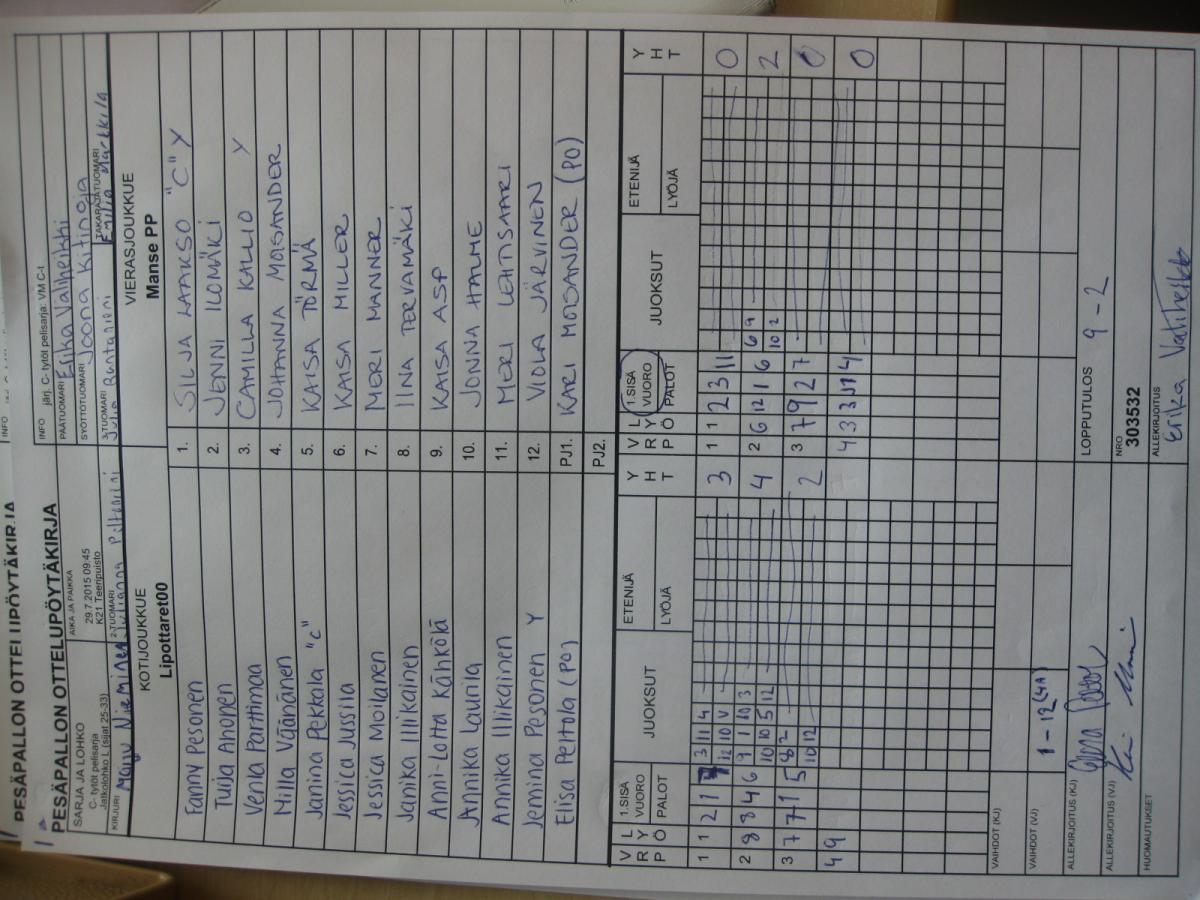 PESÄPALLON OTTELUPÖYTÄKIRJA
PESÄPALLON OTTELUPÖYTÄKIRJA
SARJA JA LOHKO
C- tytöt pelisarja
Jatkolohko L (sijat 25-33)
AIKA JA PAIKKA
29.7.2015 09:45
K21 Teeripuisto
INFO järj. C- tytöt pelisarja: VM C-t
PÄÄTUOMARI Erika Väliheikki
SYÖTTÖTUOMARI Joona Kitinoja
KIRJURI Manu Nieminen
2-TUOMARI Julianna
3-TUOMARI Julia Runtaniemi
TAKARAJATUOMARI Emilia Markkila
KOTIJOUKKUE
Lipottaret00
VIERASJOUKKUE
Manse PP
Fanny Pesonen 1. SILJA LAAKSO "C" Y
Tuija Ahonen 2. JENNI ILOMÄKI
Venla Parttimaa 3. CAMILLA KALLIO Y
Milla Väänänen 4. JOHANNA MOISANDER
Janina Pekkala "c" 5. KAISA TÖRMÄ
Jessica Jussila 6. KAISA MILLER
Jessica Moilanen 7. MERI MANNER
Janika Illikainen 8. IINA TERVAMÄKI
Anni-Lotta Kähkölä 9. KAISA ASP
Annika Launila 10. JONNA HALME
Annika Illikainen 11. MERI LEHTISAARI
Jemina Pesonen Y 12. VIOLA JÄRVINEN
Elisa Peltola (PO) PJ1. KARI MOISANDER (PO)
PJ2.
V R P L Y Ö 1.SISÄ VUORO PALOT JUOKSUT ETENIJÄ LYÖJÄ Y H T V R P L Y Ö 1.SISÄ VUORO PALOT JUOKSUT ETENIJÄ LYÖJÄ Y H T
1 1 2 1 7 3 11 4 3 1 1 2 3 11 0
12 10 V
2 8 8 4 6 9 1 10 3 4 2 6 12 1 6 6 9 2
10 10 5 12 10 2
3 7 7 1 5 8 2 2 3 7 9 2 7 0
10 12
4 9 4 3 3 4 0
VAIHDOT (KJ)
VAIHDOT (VJ) 1 - 12 (4A)
LOPPUTULOS 9 - 2
ALLEKIRJOITUS (KJ)
ALLEKIRJOITUS (VJ)
NRO
303532
HUOMAUTUKSET
ALLEKIRJOITUS
Erika Väliheikki